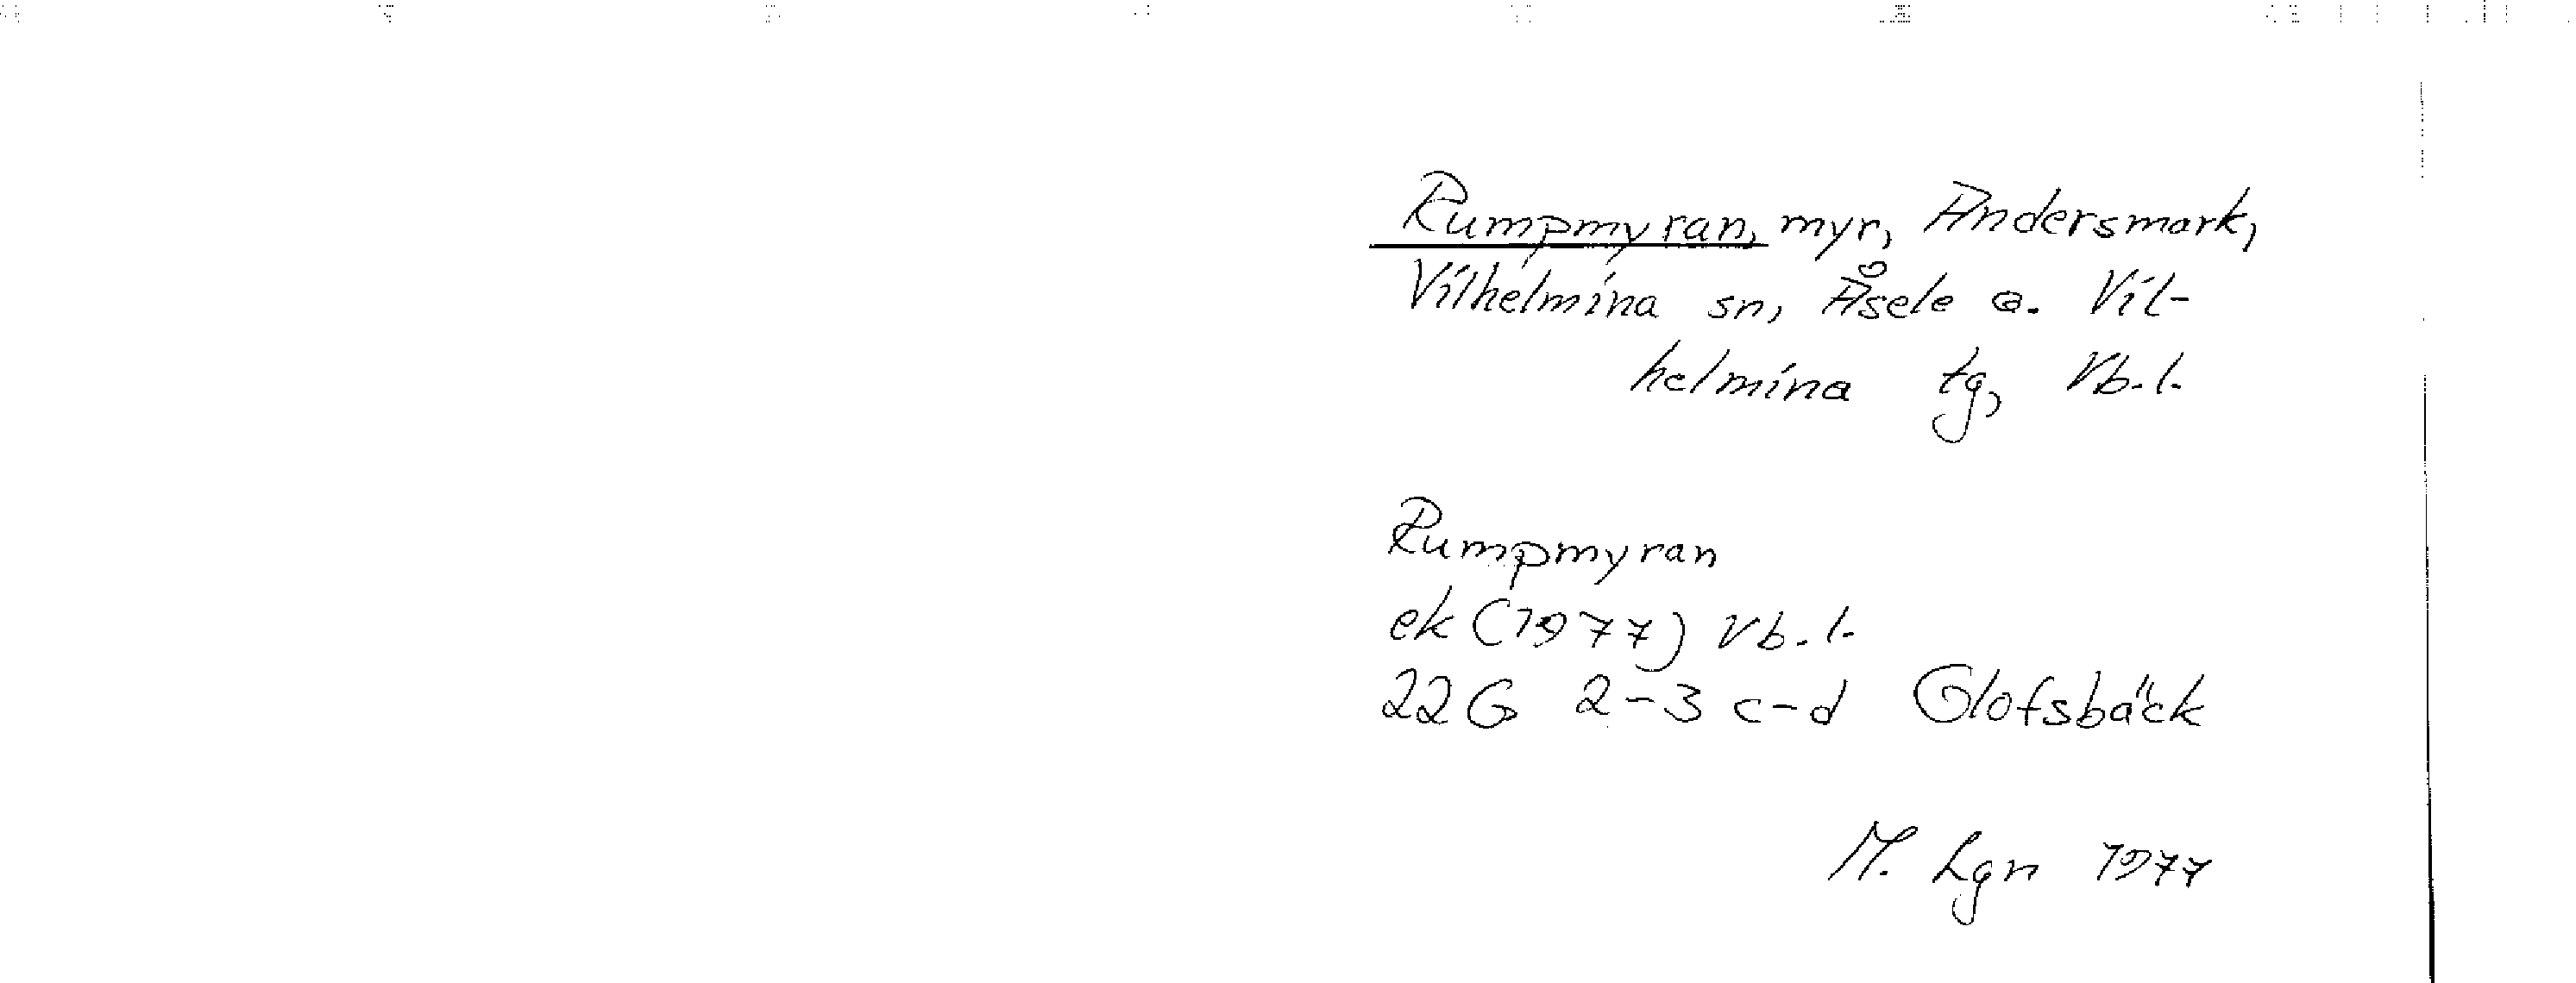 Rumpmyran, myr, Andersmark,
Vilhelmina sn, Åsele o. Vil-
helmina tg, Vb.l.
Rumpmyran
ek (1977) Vb.l.
22G 2-3 c-d Glofsbäck
M. Lgn 1977